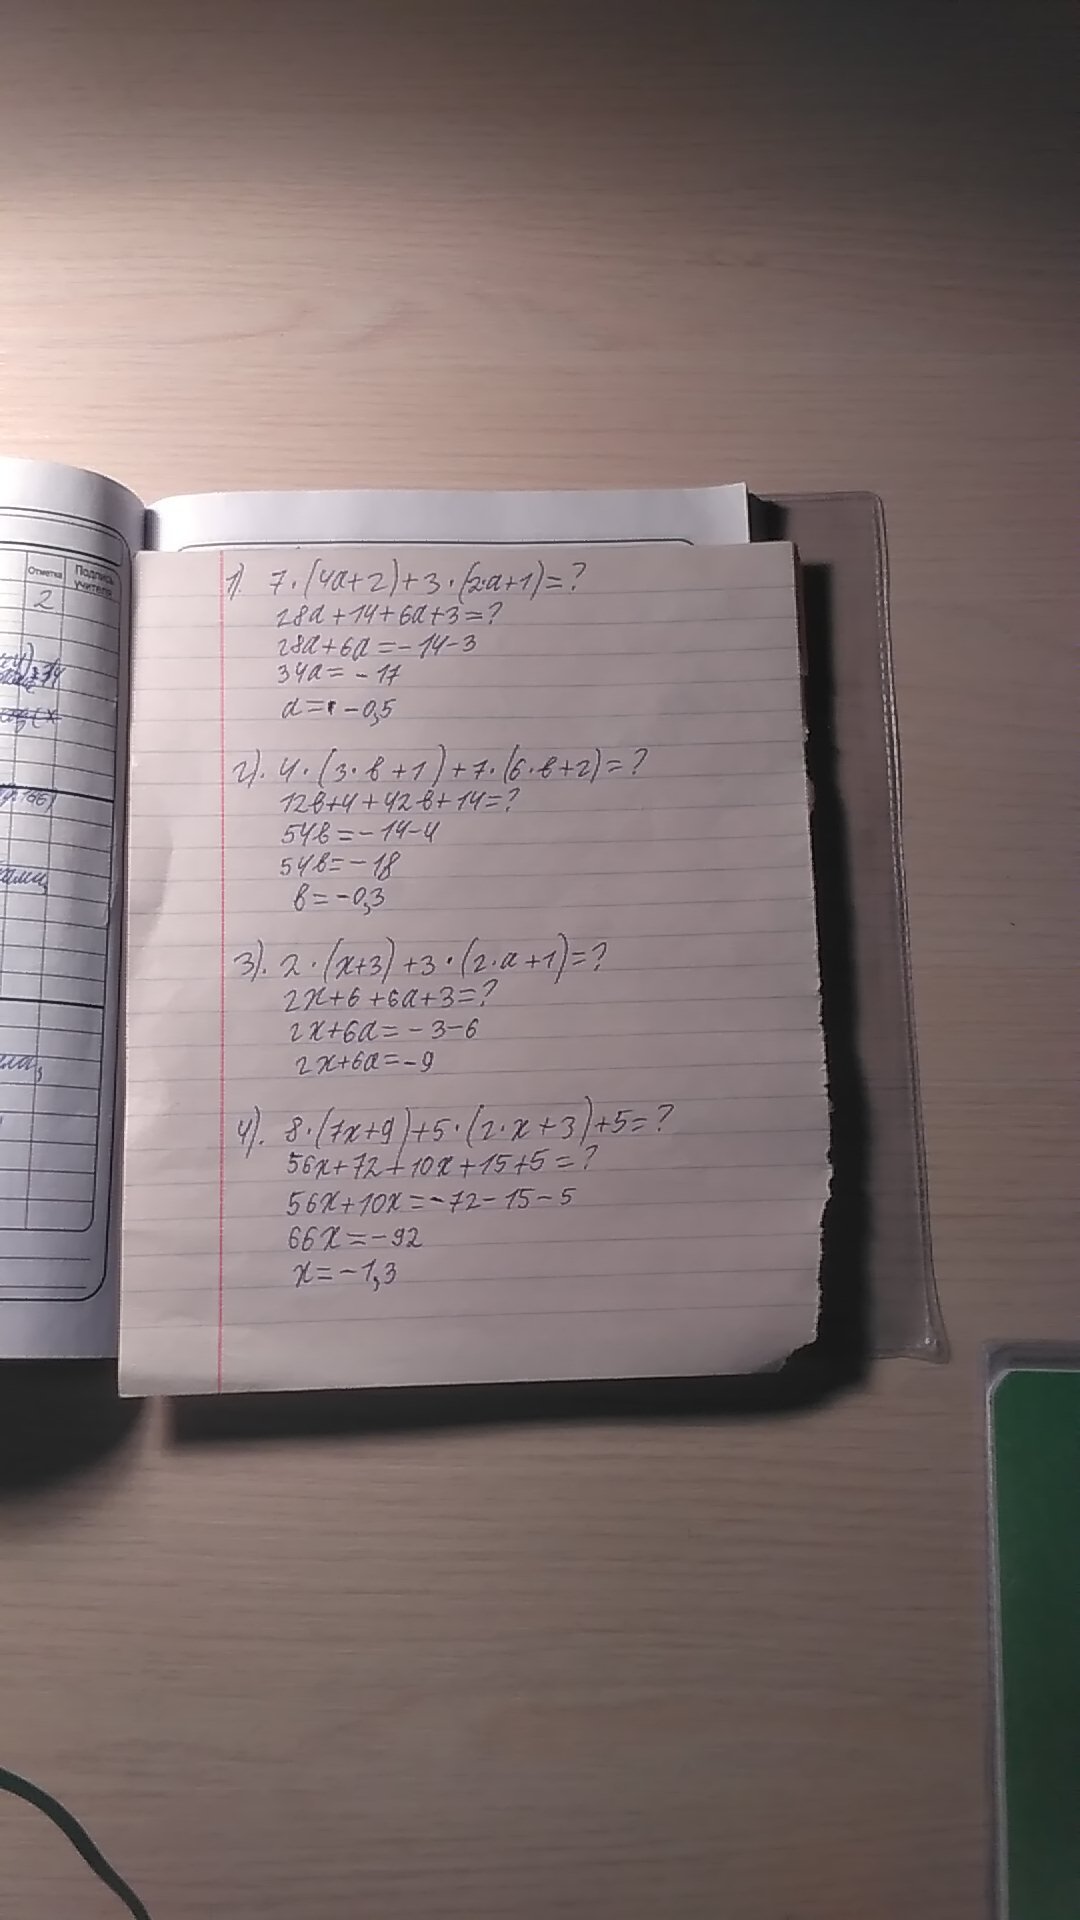 Отметка
Подпись учителя
2
1). 7·(4a+2)+3·(2·a+1)=?
28a+14+6a+3=?
28a+6a=-14-3
34a=-17
a=-0,5
2). 4·(3·в+1)+7·(6·в+2)=?
12в+4+42в+14=?
54в=-14-4
54в=-18
в=-0,3
3). 2·(x+3)+3·(2·a+1)=?
2x+6+6a+3=?
2x+6a=-3-6
2x+6a=-9
4). 8·(7x+9)+5·(2·x+3)+5=?
56x+72+10x+15+5=?
56x+10x=-72-15-5
66x=-92
x=-1,3